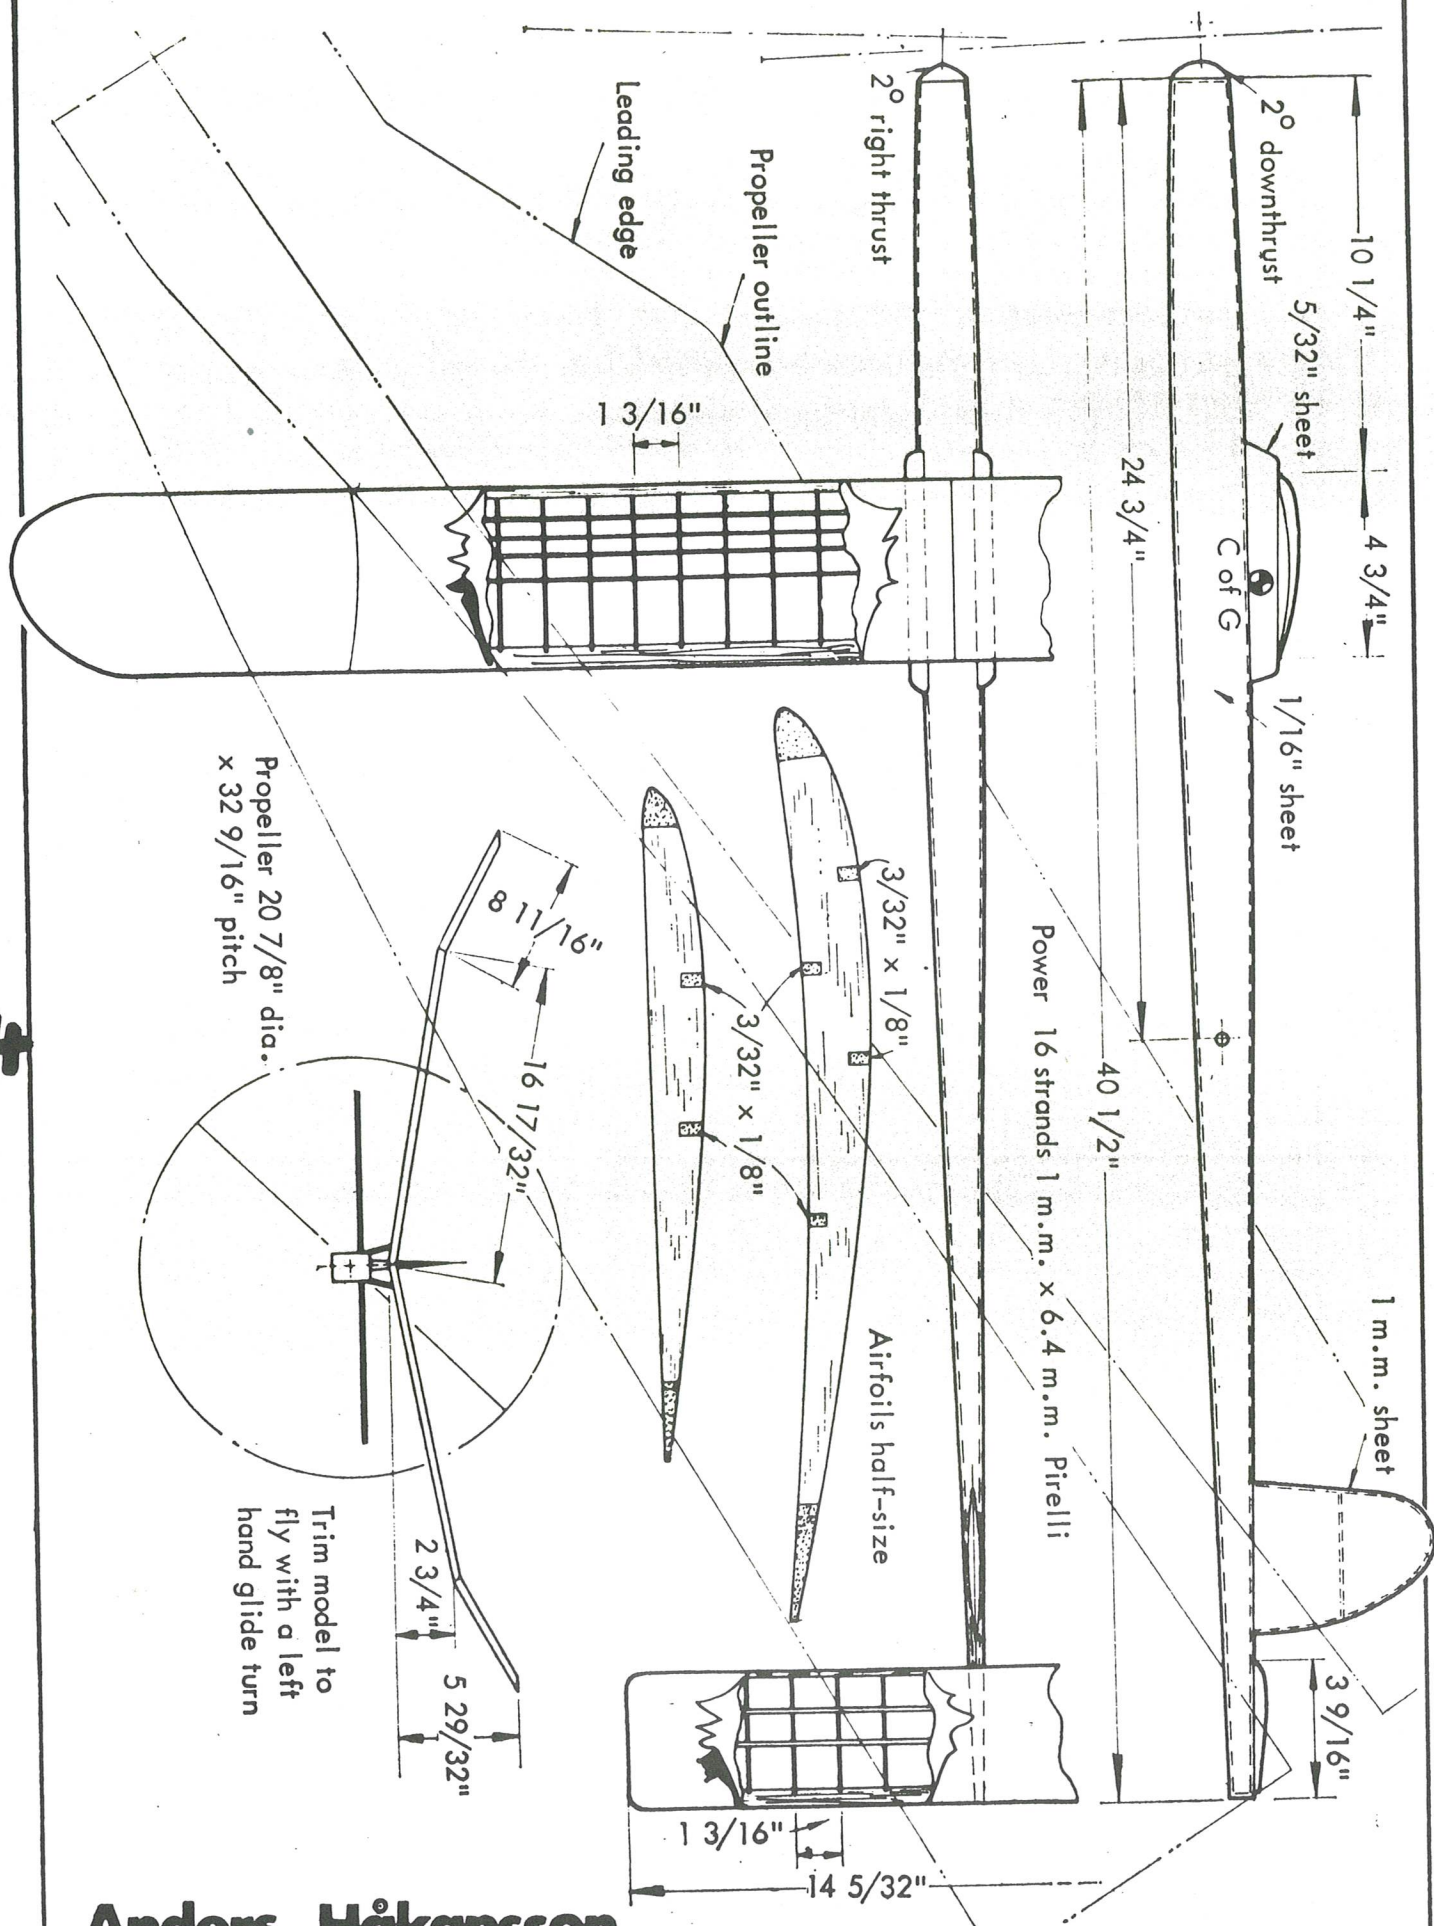 10 1/4"
4 3/4"
2° downthrust
5/32" sheet
C of G
1/16" sheet
1 m.m. sheet
3 9/16"
24 3/4"
40 1/2"
2° right thrust
Propeller outline
Leading edge
1 3/16"
Power 16 strands 1 m.m. x 6.4 m.m. Pirelli
3/32" x 1/8"
3/32" x 1/8"
Airfoils half-size
8 11/16"
16 17/32"
Propeller 20 7/8" dia.
x 32 9/16" pitch
2 3/4"
5 29/32"
Trim model to
fly with a left
hand glide turn
1 3/16"
14 5/32"
Anders Håkansson